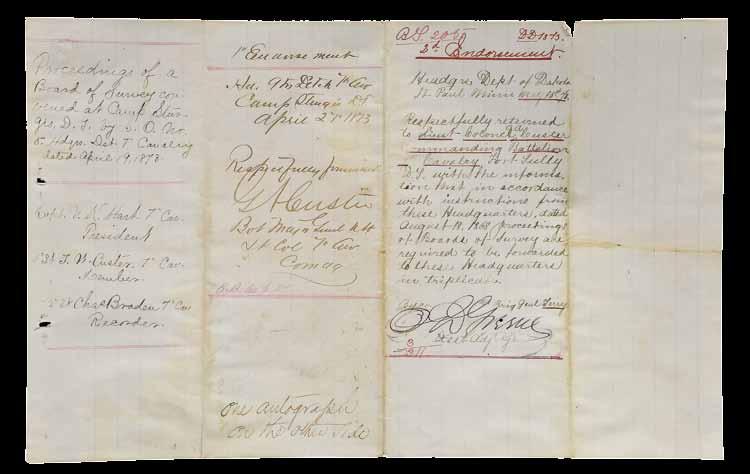 Proceedings of a
Board of Survey con-
vened at Camp Stur-
gis, D.T. by S.O. No.
8 Hdqrs. Det. 7 Cavalry
dated April 19, 1873.
Capt. V. K. Hart 7" Cav.
President
1st Lt. T. W. Custer 7" Cav.
Member
Chas Braden 7" Cav
Recorder
1st Endorsement
Hd. Qtrs Detch 7" Cav
Camp Sturgis D.T.
April 21st 1873
Respectfully forwarded
G A Custer
Bvt Maj Genl U.S.A
Lt Col 7" Cav
Comdg
one autograph
on the other side
D.D. 1873.
2d Endorsement.
Headqrs Dept of Dakota
St Paul Minn May
Respectfully returned
to Lieut-Colonel Custer
Commanding Battalion
Cavalry Fort Sully
D.T. with the informa-
tion that in accordance
with instructions from
these Headquarters, dated
August 18, 1868 proceedings
of Boards of Survey are
required to be forwarded
to these Headquarters
in triplicate.
Brig Genl Terry
O D Greene
Asst Adj Gen